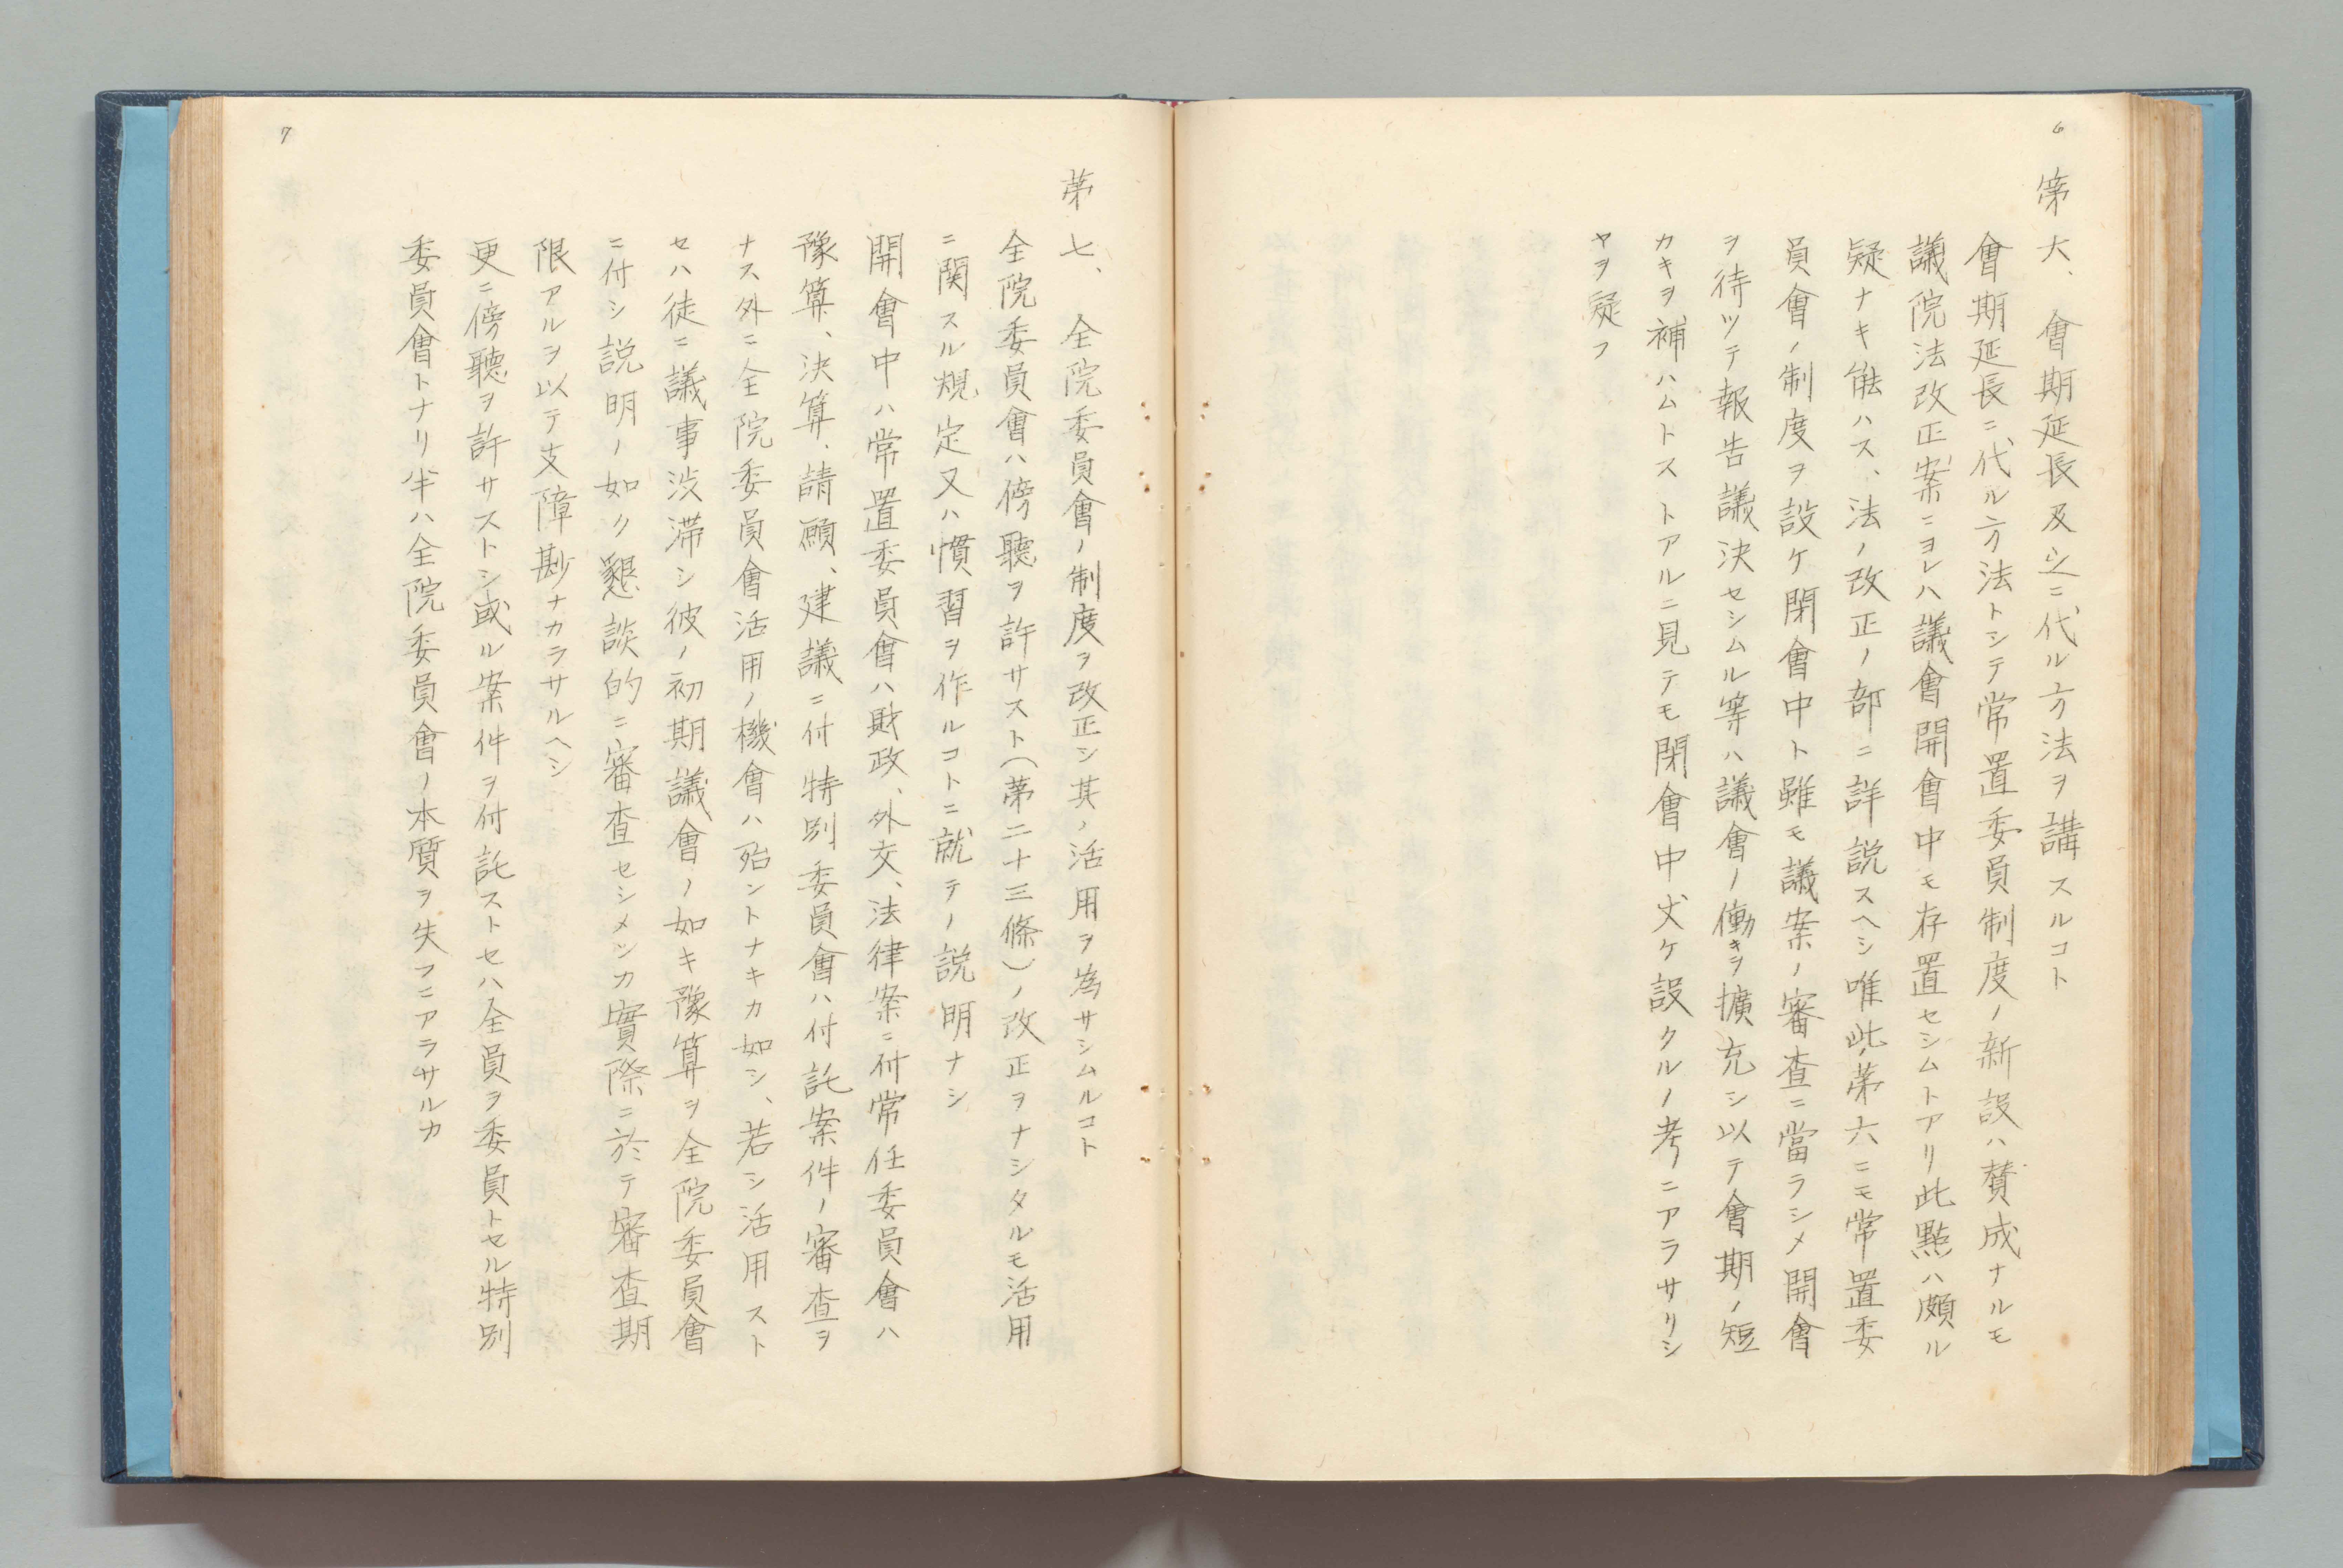 6
第六、會期延長及之ニ代ル方法ヲ講スルコト
會期延長ニ代ル方法トシテ常置委員制度ノ新設ハ賛成ナルモ
議院法改正案ニヨレハ議會開會中モ存置セシムトアリ此點ハ頗ル
疑ナキ能ハス、法ノ改正ノ部ニ詳説スヘシ唯此ノ第六ニモ常置委
員會ノ制度ヲ設ケ閉會中ト雖モ議案ノ審査ニ當ラシメ開會
ヲ待ツテ報告議決セシムル等ハ議會ノ働キヲ擴充シ以テ會期ノ短
カキヲ補ハムトストアルニ見テモ閉會中丈ケ設クルノ考ニアラサリシ
ヤヲ疑フ
7
第七、全院委員會ノ制度ヲ改正シ其ノ活用ヲ為サシムルコト
全院委員會ハ傍聽ヲ許サスト(第二十三條)ノ改正ヲナシタルモ活用
ニ関スル規定又ハ慣習ヲ作ルコトニ就テノ説明ナシ
開會中ハ常置委員會ハ財政、外交、法律案ニ付常任委員會ハ
豫算、決算、請願、建議ニ付特別委員會ハ付託案件ノ審査ヲ
ナス外ニ全院委員會活用ノ機會ハ殆ントナキカ如シ、若シ活用スト
セハ徒ニ議事渋滞シ彼ノ初期議會ノ如キ豫算ヲ全院委員會
ニ付シ説明ノ如ク懇談的ニ審査セシメンカ實際ニ於テ審査期
限アルヲ以テ支障尠ナカラサルヘシ
更ニ傍聽ヲ許サストシ或ル案件ヲ付託ストセハ全員ヲ委員トセル特別
委員會トナリ半ハ全院委員會ノ本質ヲ失フニアラサルカ